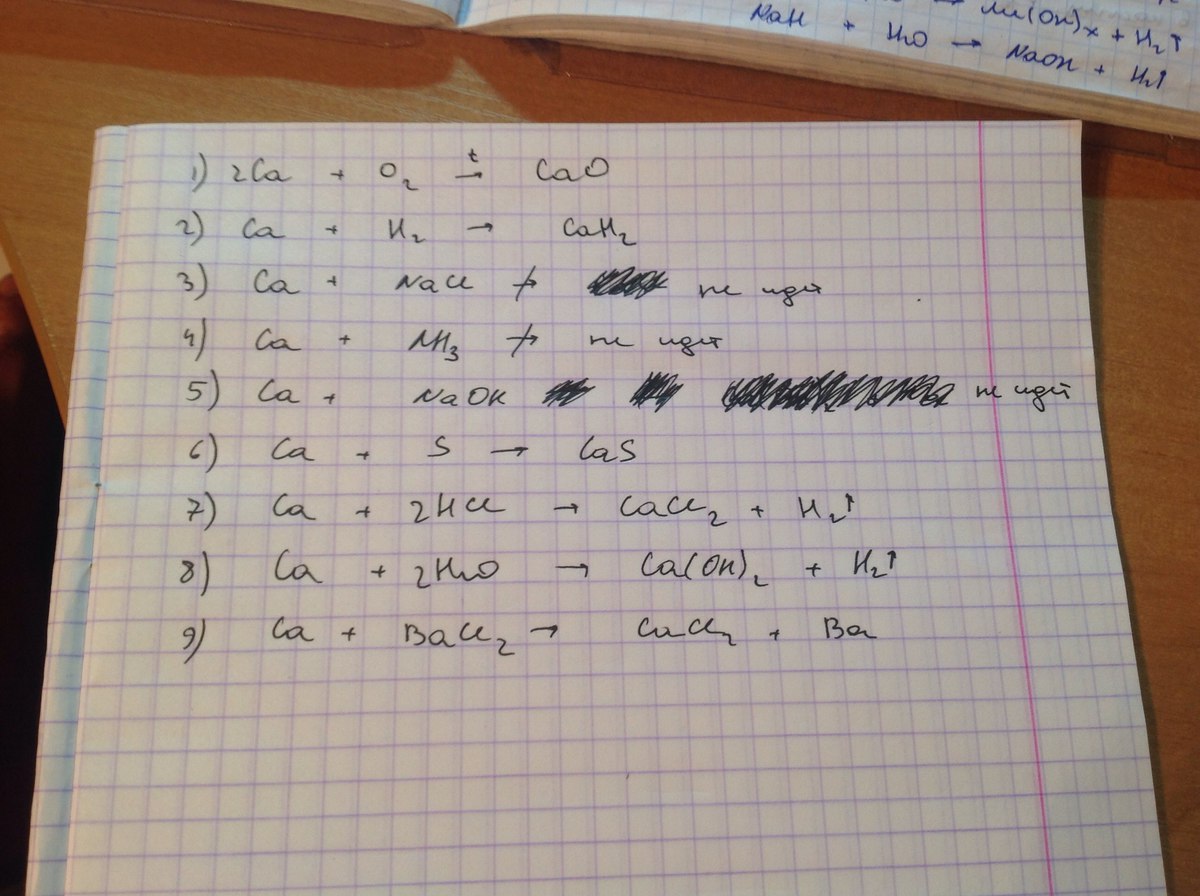 Me(OH)x + H₂↑
NaH + H₂O → NaOH + H₂↑
1) 2Ca + O₂ →ᵗ CaO
2) Ca + H₂ → CaH₂
3) Ca + NaCl ↛ не идёт
4) Ca + NH₃ ↛ не идёт
5) Ca + NaOH не идёт
6) Ca + S → CaS
7) Ca + 2HCl → CaCl₂ + H₂↑
8) Ca + 2H₂O → Ca(OH)₂ + H₂↑
9) Ca + BaCl₂ → CaCl₂ + Ba